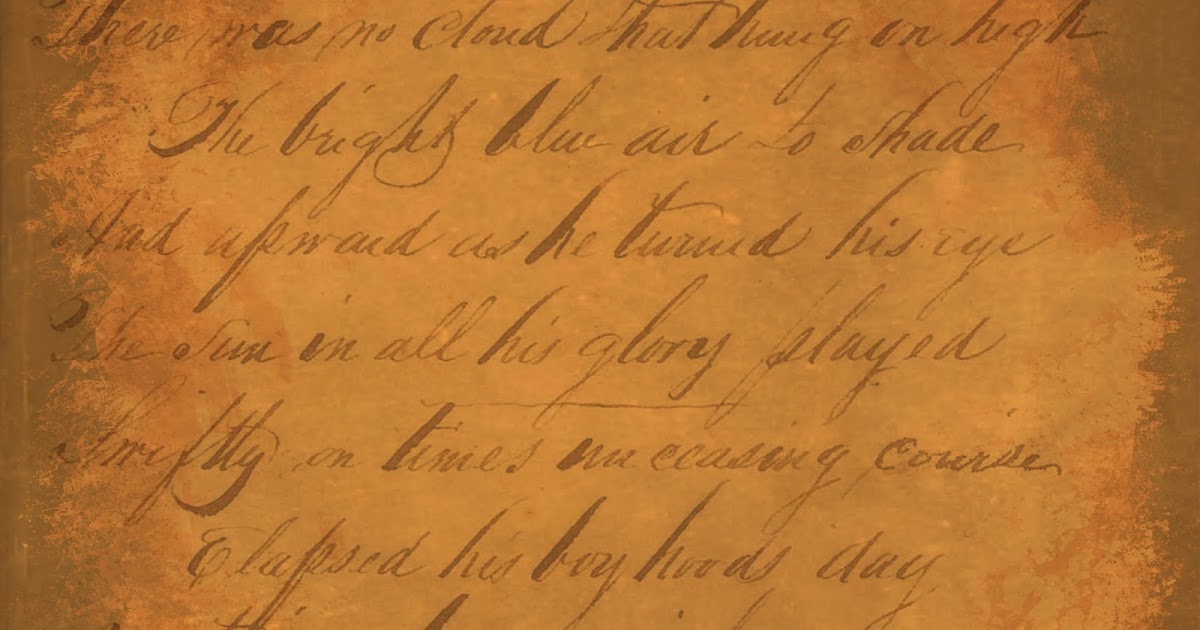 There was no cloud that hung on high
The bright blue air to shade
And upward as he turned his eye
The Sun in all his glory played
Swiftly on times unceasing course
Elapsed his boy hoods day